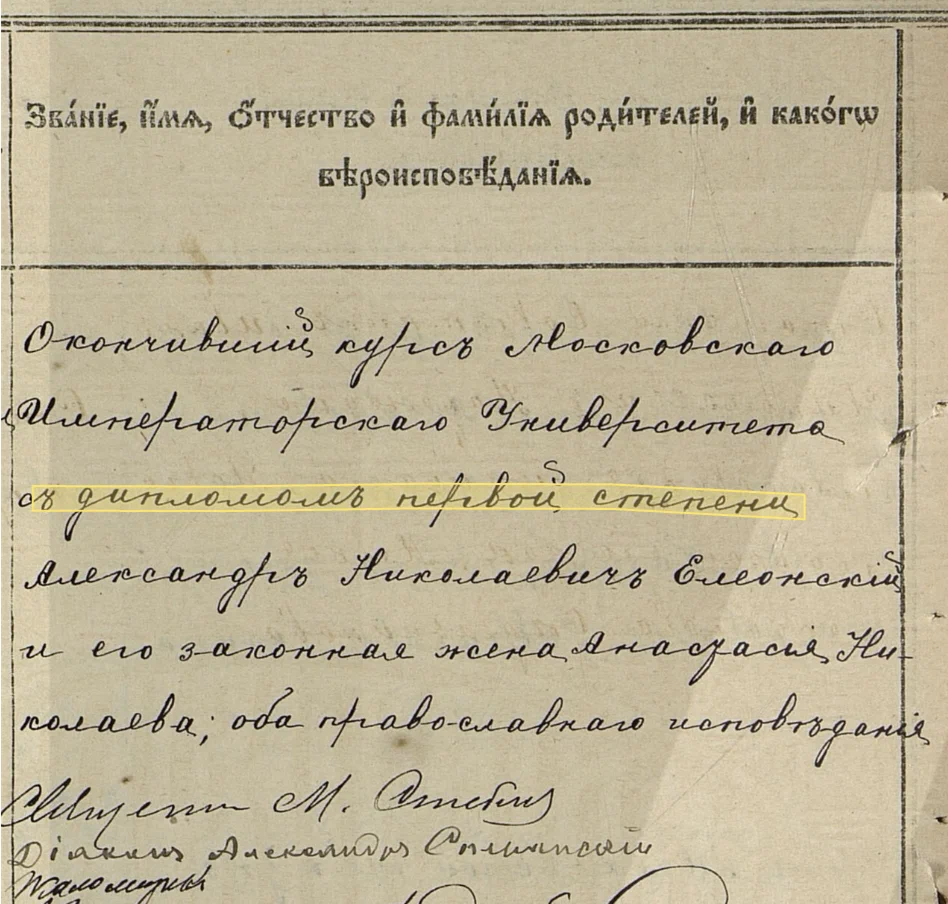 Зва́нїе, и҆́мѧ, ѻ҆́тчество и҆ фами́лїѧ роди́телей, и҆ како́гѡ
вѣроисповѣ́данїѧ.
Окончившій курсъ Московскаго
Императорскаго Университета
съ дипломомъ первой степени
Александръ Николаевичъ Елеонскій
и его законная жена Анастасія Ни-
колаева; оба православнаго исповѣданія
М.
Діаконъ Александръ